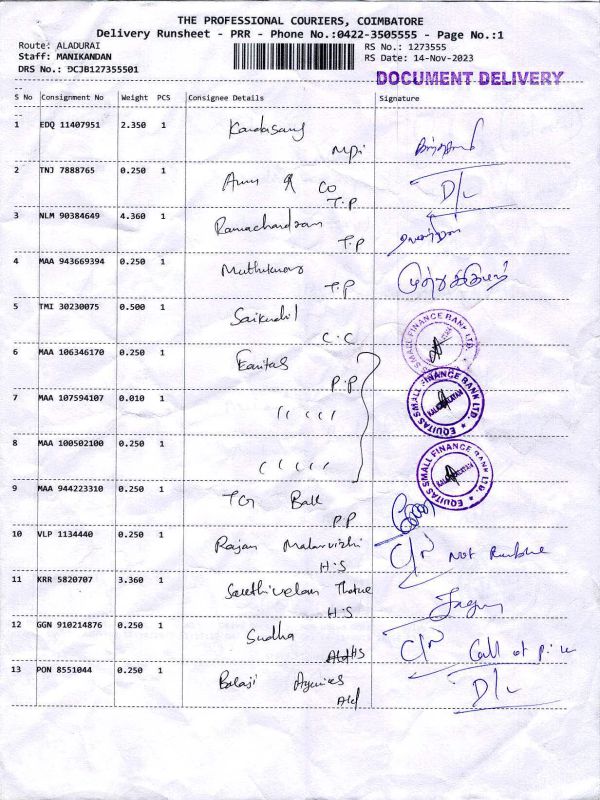 THE PROFESSIONAL COURIERS, COIMBATORE
Delivery Runsheet - PRR - Phone No.:0422-3505555 - Page No.:1
Route: ALADURAI RS No.: 1273555
Staff: MANIKANDAN RS Date: 14-Nov-2023
DRS No.: DCJB127355501
DOCUMENT DELIVERY
S No Consignment No Weight PCS Consignee Details Signature
1 EDQ 11407951 2.350 1
2 TNJ 7888765 0.250 1 & Co D/L
T.P
3 NLM 90384649 4.360 1 Ramachandran
T.P
4 MAA 943669394 0.250 1 Muthukumar முத்துக்குமார்
T.P
5 TMI 30230075 0.500 1
C.C
EQUITAS SMALL FINANCE BANK LTD.
6 MAA 106346170 0.250 1 Equitas
P.P
EQUITAS SMALL FINANCE BANK LTD.
7 MAA 107594107 0.010 1 " " "
8 MAA 100502100 0.250 1 " " "
EQUITAS SMALL FINANCE BANK LTD.
9 MAA 944223310 0.250 1
P.P
10 VLP 1134440 0.250 1 Rajan Malarvizhi Not
H.S
11 KRR 5820707 3.360 1 Sakthivelan
H.S
12 GGN 910214876 0.250 1 Sudha Call
HS
13 PON 8551044 0.250 1 Balaji Agencies D/L
Ald